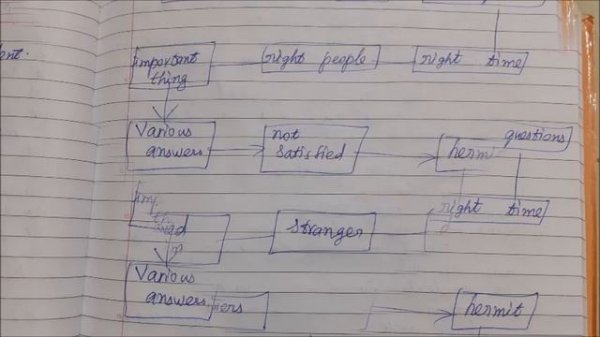 ent.
important
thing
right people
right time
Various
answers
not
satisfied
questions
herm
imp
stranger
right time
Various
answers
ers
hermit